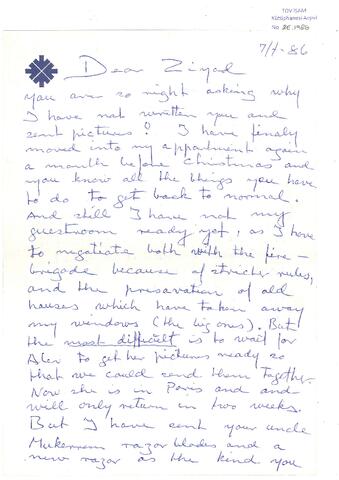 TDV İSAM
Kütüphanesi Arşivi
No 2E.1986
7/1-86
Dear Ziyad
you are so right asking why
I have not written you and
sent pictures? I have finaly
moved into my appartment again
a month before Christmas and
you know all the things you have
to do to get back to normal.
And still I have not my
guestroom ready yet, as I have
to negotiate both with the fire-
brigade because of stricter rules,
and the presavation of old
houses which have taken away
my windows (the big ones). But
the most difficult is to wait for
Alev to get her pictures ready so
that we could send them together.
Now she is in Paris and and
will only return in two weeks.
But I have sent your uncle
Mukerrem razor blades and a
new razor as the kind you